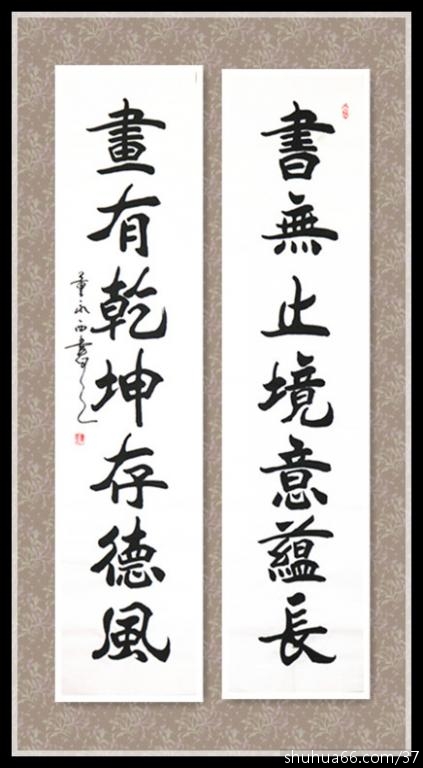 書無止境意蘊長
畫有乾坤存德風
董永西書
shuhua66.com/37